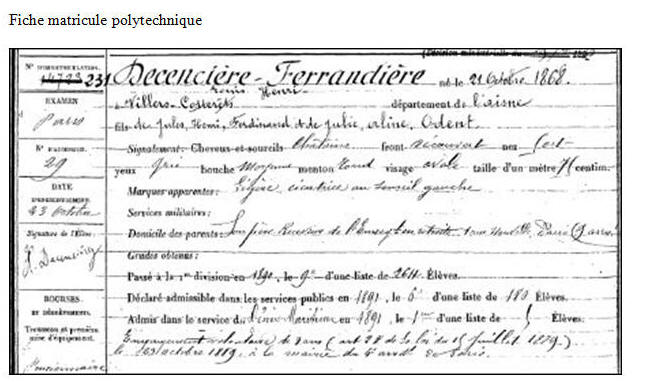 Fiche matricule polytechnique
(Décision ministérielle du
N° D'IMMATRICULATION.
14723 231
Decencière-Ferrandière né le 21 Octobre 1868
Louis Henri
à Villers-Cotterêts département de l'aisne
EXAMEN
Paris
fils de Jules, Henri, Ferdinand & de Julie, aline, Odent.
Signalement: Cheveux et sourcils Châtains front découvert nez fort
yeux gris bouche Moyenne menton rond visage ovale taille d'un mètre 71 centim.
29
Marques apparentes: Légère cicatrice au sourcil gauche
DATE
23 Octobre
Services militaires:
Domicile des parents: Son père Receveur de l'Enregt en retraite Paris
Signature de l'Élève:
Grades obtenus:
Passé à la 1re division en 1890, le 9e d'une liste de 264 Élèves.
Déclaré admissible dans les services publics en 1891, le 6e d'une liste de 180 Élèves.
BOURSES
Admis dans le service du Génie Maritime en 1891, le 1er d'une liste de 5 Élèves.
Trousseau et première mise d'équipement.
Engagement volontaire de 3 ans (art 28 de la loi du 15 juillet 1889)
le 23 octobre 1889, à la mairie du 5e arrdt de Paris.
Pensionnaire